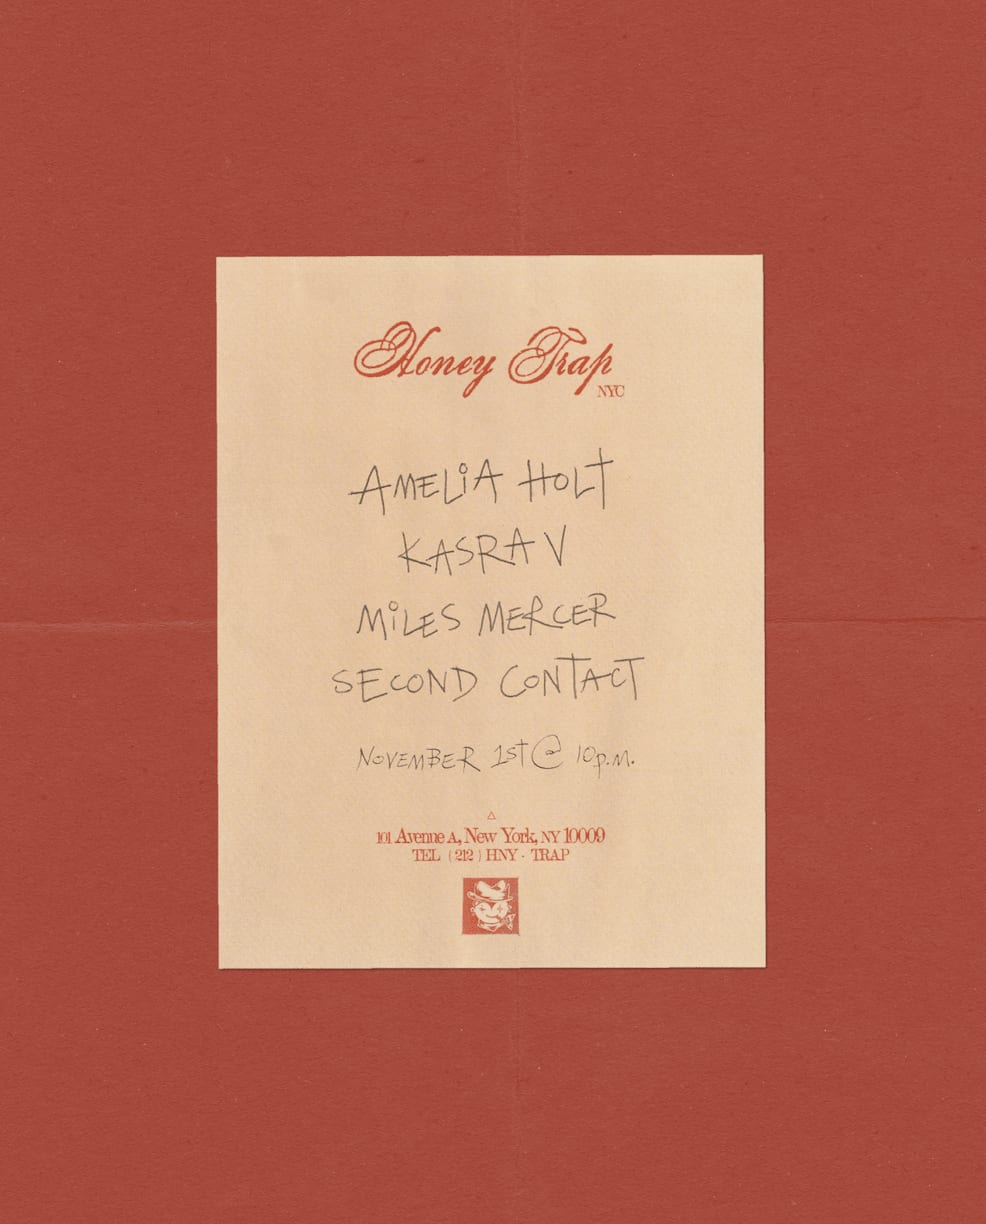 Honey Trap
NYC
AMELiA HOLT
KASRA V
MiLES MERCER
SECOND CONTACT
NOVEMBER 1st @ 10p.m.
101 Avenue A, New York, NY 10009
TEL (212) HNY - TRAP